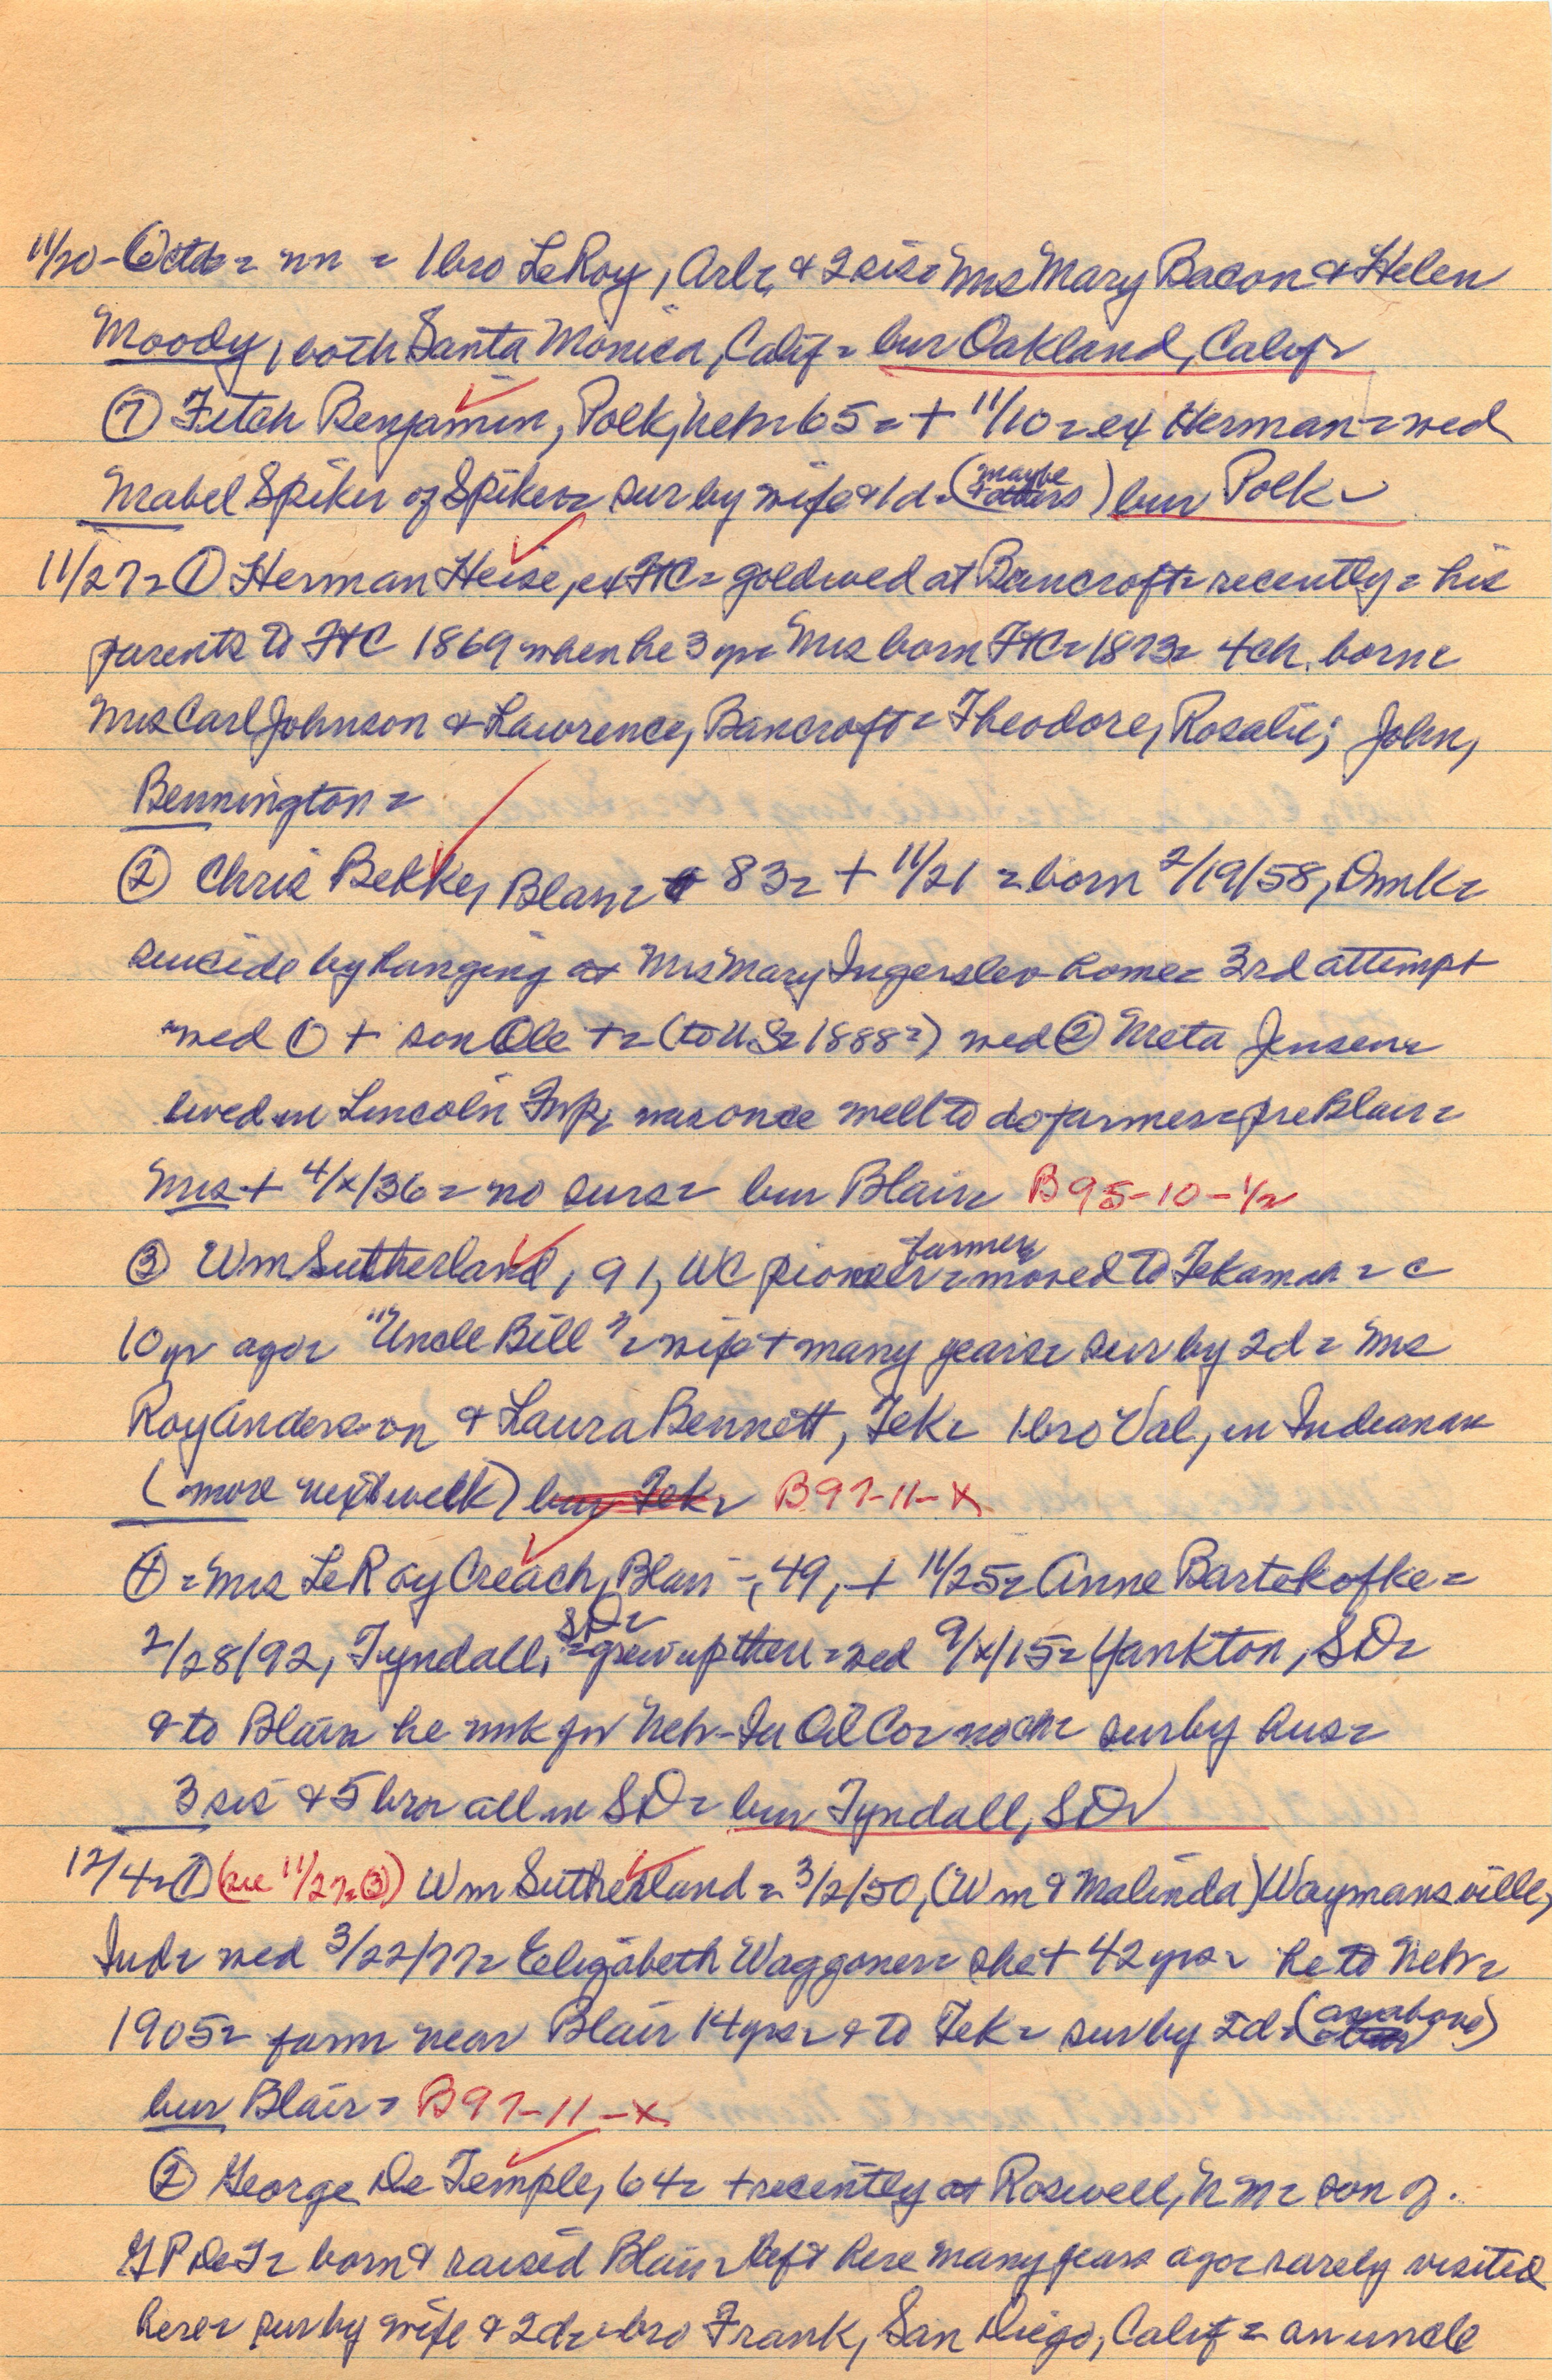 11/20 - 6 Octd = nn = 1 bro LeRoy, Arl = & 2 sis = Mrs Mary Bacon & Helen
Moody, both Santa Monica, Calif = bur Oakland, Calif =
⑦ Fitch Benjamin, Polk, Nebr 65 = + 11/10 = ex Herman = wed
Mabel Spiker of Spiker = sur by wife & 1 d = (maybe others) bur Polk =
11/27 = ① Herman Heise, ex FtC = gold wed at Bancroft = recently = his
parents to FtC 1869 when he 3 yr = Mrs born FtC = 1873 = 4 ch. born =
Mrs Carl Johnson & Lawrence, Bancroft = Theodore, Rosalie; John,
Bennington =
② Chris Bekke, Blair = 83 = + 11/21 = born 2/19/58, Dmk =
suicide by hanging at Mrs Mary Ingerslev home = 3rd attempt
wed ① + son Ole + = (to U.S = 1888 =) wed ② Meta Jensen =
lived in Lincoln Twp, was once well to do farmer = pre Blair =
Mrs + 4/x/36 = no surs = bur Blair = B95-10-1/2
③ Wm Sutherland, 91, WC pioneer farmer = moved to Tekamah = c
10 yr ago = "Uncle Bill" = wife + many years = sur by 2 d = Mrs
Roy Anderson & Laura Bennett, Tek = 1 bro Val, in Indiana =
(more next week) bur Tek = B97-11-X
④ = Mrs LeRoy Creach, Blair -, 49, + 11/25 = Anne Bartekofke =
2/28/92, Tyndall, SD = = grew up there = wed 9/x/15 = Yankton, SD =
& to Blair he mk for Neb-Ia Oil Co = no ch = sur by hus =
3 sis & 5 bro = all in SD = bur Tyndall, SD =
12/4 = ① (see 11/27 = ③) Wm Sutherland = 3/2/50, (Wm & Malinda) Waymansville,
Ind = wed 3/22/77 = Elizabeth Waggoner = she + 42 yrs = he to Nebr =
1905 = farm near Blair 14 yrs = & to Tek = sur by 2 d = (as above)
bur Blair = B97-11-X
② George De Temple, 64 = + recently at Roswell, N M = son of
G P DeT = born & raised Blair = left here many years ago = rarely visited
here = sur by wife & 2 d = bro Frank, San Diego, Calif = an uncle